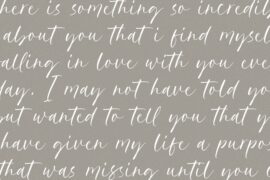 here is something so incredib
about you that i find mysel
alling in love with you eve
day. I may not have told yo
but wanted to tell you that y
have given my life a purpos
that was missing until you